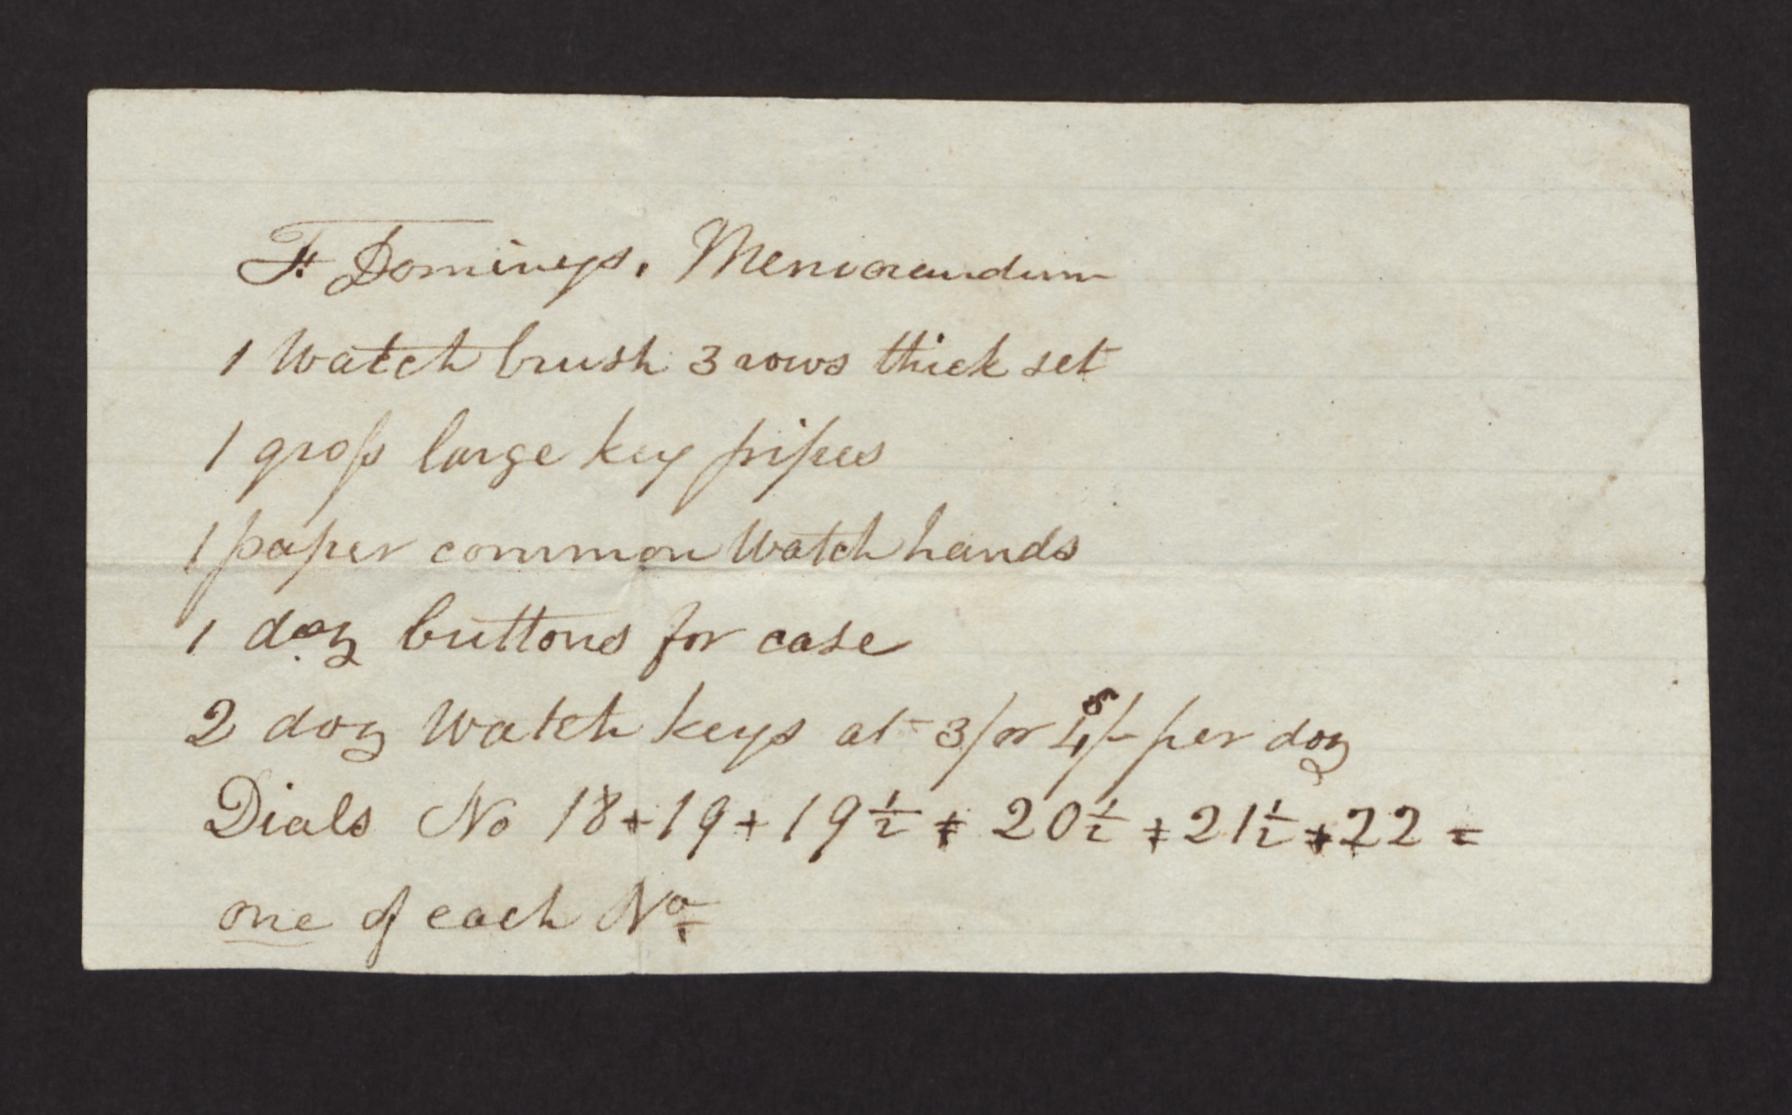 F. Dominys. Memorandum
1 Watch brush 3 rows thick set
1 groſs large key pipes
1 paper common Watch hands
1 doz buttons for case
2 doz Watch keys at 3/ or 4s/- per doz
Dials No 18 + 19 + 19 1/2 + 20 1/2 + 21 1/2 + 22 =
one of each No